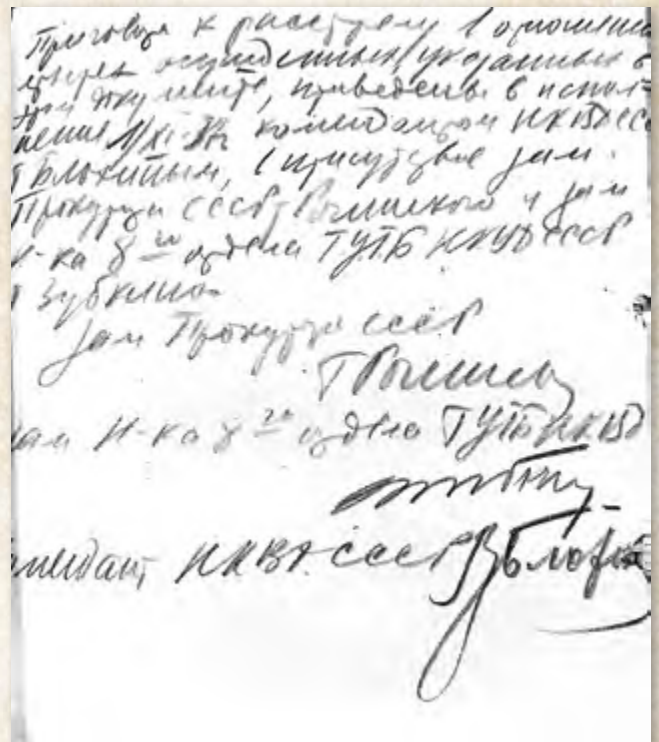 Приговор к расстрелу в отношении
осужденных, указанных в
документе, приведены в испол-
нение 1/XI-37г комендантом НКВД ССС
т Блохиным, в присутствие зам.
Прокурора СССР т Рогинского и зам
Н-ка 8го отдела ГУГБ НКВД СССР
т Зубкина
Зам Прокурора СССР
Г Рогинск
ам Н-ка 8го отдела ГУГБ НКВД
омендант НКВД СССР Блохин